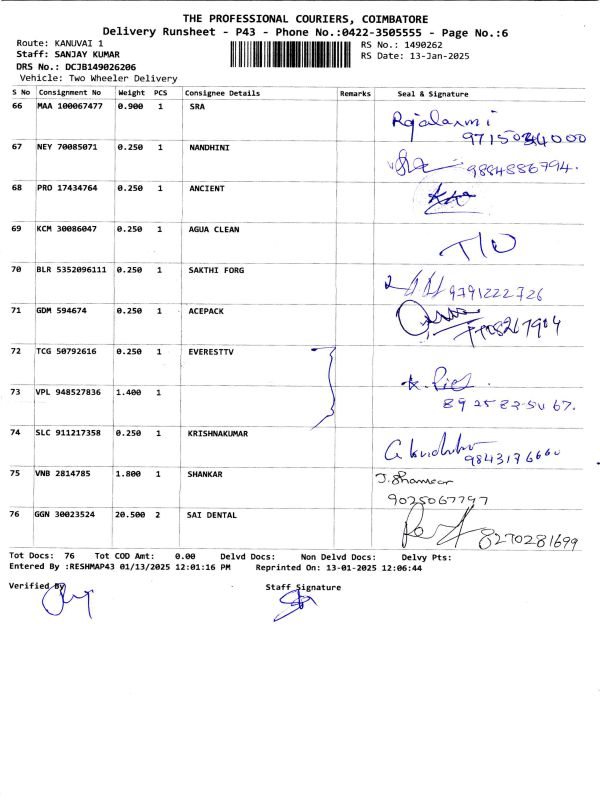 THE PROFESSIONAL COURIERS, COIMBATORE
Delivery Runsheet - P43 - Phone No.:0422-3505555 - Page No.:6
Route: KANUVAI 1
RS No.: 1490262
Staff: SANJAY KUMAR
RS Date: 13-Jan-2025
DRS No.: DCJB149026206
Vehicle: Two Wheeler Delivery
S No Consignment No Weight PCS Consignee Details Remarks Seal & Signature
66 MAA 100067477 0.900 1 SRA
Rajalaxmi
67 NEY 70085071 0.250 1 NANDHINI
9884886794.
68 PRO 17434764 0.250 1 ANCIENT
69 KCM 30086047 0.250 1 AGUA CLEAN
70 BLR 5352096111 0.250 1 SAKTHI FORG
9791222726
71 GDM 594674 0.250 1 ACEPACK
72 TCG 50792616 0.250 1 EVERESTTV
73 VPL 948527836 1.400 1
74 SLC 911217358 0.250 1 KRISHNAKUMAR
75 VNB 2814785 1.800 1 SHANKAR
J. Shankar
9025067797
76 GGN 30023524 20.500 2 SAI DENTAL
8270281699
Tot Docs: 76 Tot COD Amt: 0.00 Delvd Docs: Non Delvd Docs: Delvy Pts:
Entered By :RESHMAP43 01/13/2025 12:01:16 PM Reprinted On: 13-01-2025 12:06:44
Verified By
Staff Signature